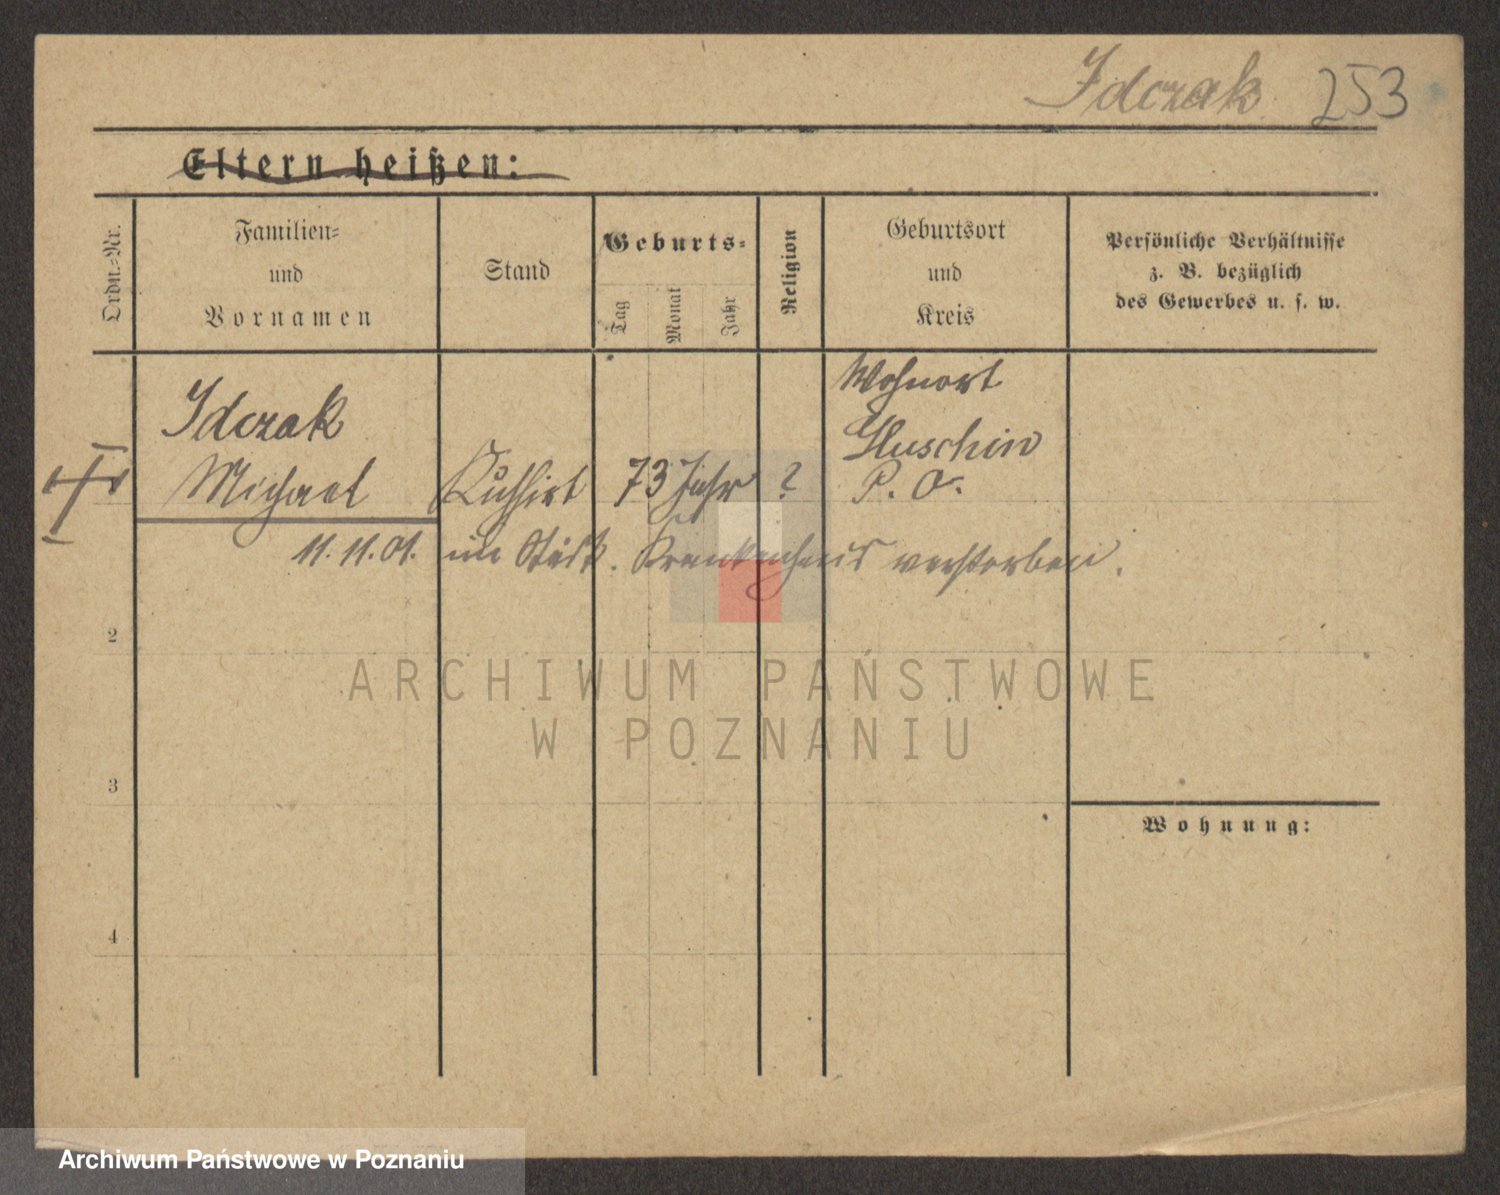 Idczak 253
Eltern heißen:
Ordn.=Nr.
Familien=
und
Vornamen
Stand
Geburts=
Tag
Monat
Jahr
Religion
Geburtsort
und
Kreis
Persönliche Verhältnisse
z. B. bezüglich
des Gewerbes u. s. w.
Wohnort
Idczak
Gluschin
Michael Kuhhirt 73 Jahr ? P. O.
11. 11. 01. im Städt. Krankenhaus verstorben.
2
ARCHIWUM PAŃSTWOWE
W POZNANIU
3
Wohnung:
4
Archiwum Państwowe w Poznaniu